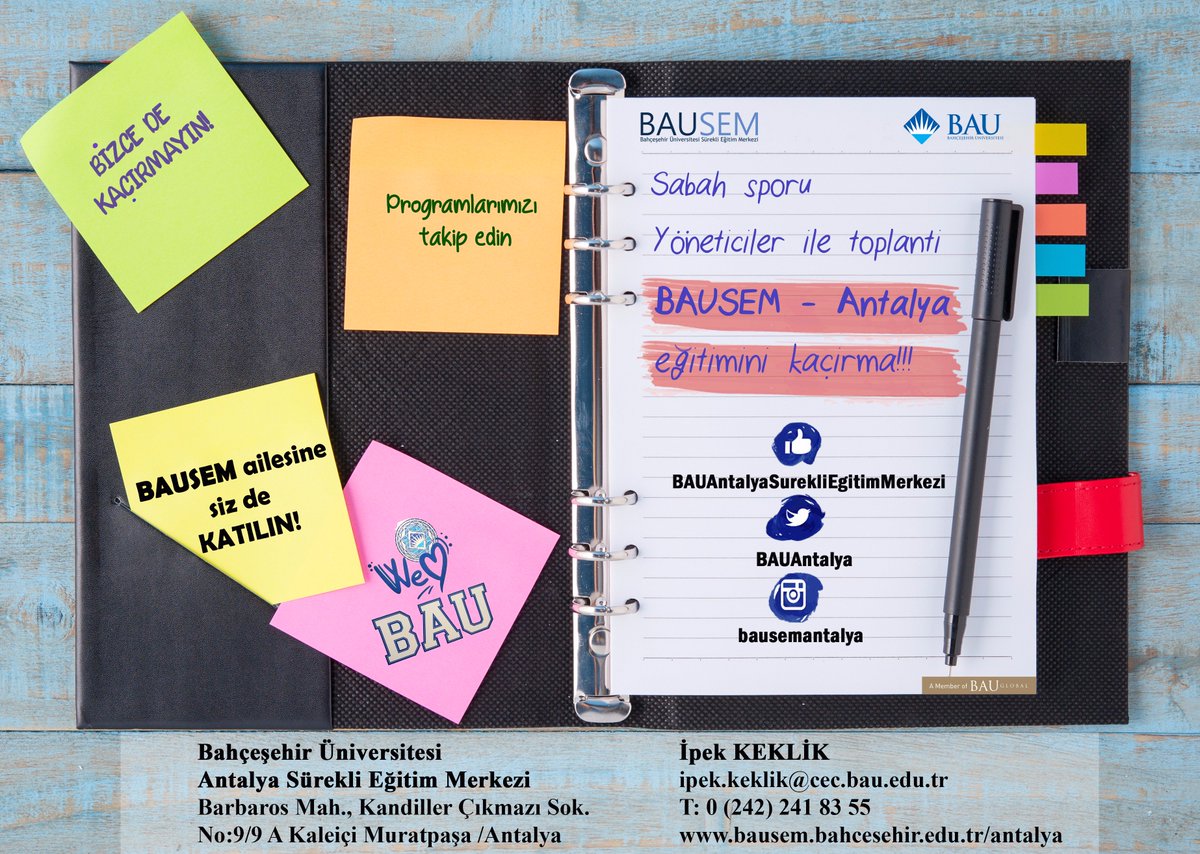 BİZCE DE
KAÇIRMAYIN!
Programlarımızı
takip edin
BAUSEM ailesine
siz de
KATILIN!
We
BAU
BAUSEM
Bahçeşehir Üniversitesi Sürekli Eğitim Merkezi
BAU
BAHÇEŞEHİR ÜNİVERSİTESİ
Sabah sporu
Yöneticiler ile toplanti
BAUSEM - Antalya
eğitimini kaçirma!!!
BAUAntalyaSurekliEgitimMerkezi
BAUAntalya
bausemantalya
A Member of BAU GLOBAL
Bahçeşehir Üniversitesi
Antalya Sürekli Eğitim Merkezi
Barbaros Mah., Kandiller Çıkmazı Sok.
No:9/9 A Kaleiçi Muratpaşa /Antalya
İpek KEKLİK
ipek.keklik@cec.bau.edu.tr
T: 0 (242) 241 83 55
www.bausem.bahcesehir.edu.tr/antalya